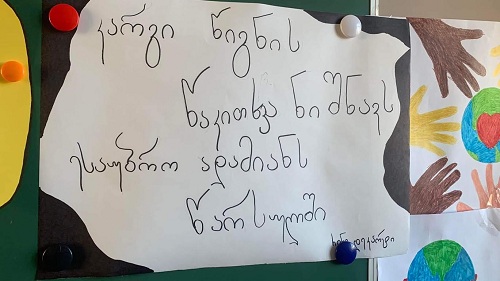 კარგი წიგნის
წაკითხვა ნიშნავს
ესაუბრო ადამიანს
წარსულში
რენე დეკარტი